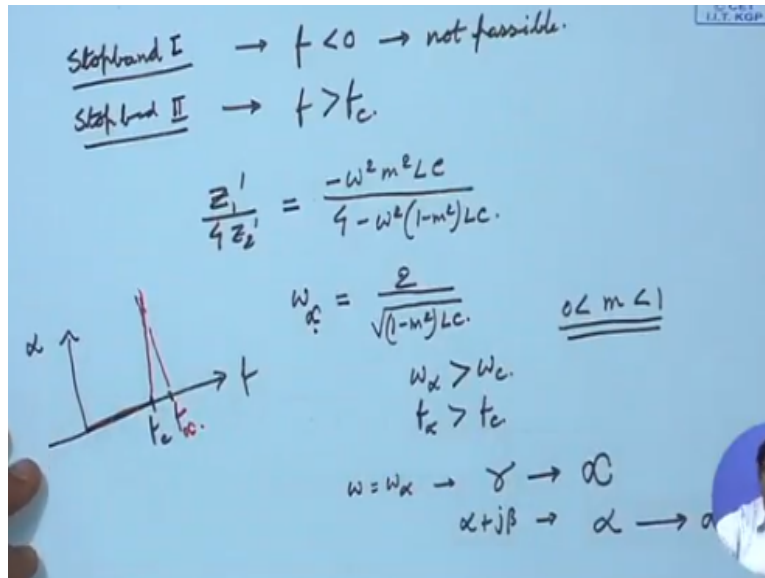 C CET
I.I.T. KGP
Stopband I → f < 0 → not passible.
Stopband II → f > fc.
Z1' / 4Z2' = -ω²m²LC / 4 - ω²(1-m²)LC.
ω∞ = 2 / √(1-m²)LC.
0 < m < 1
ω∞ > ωc.
f∞ > fc
α
f
fc f∞.
ω = ω∞ → γ → ∞
α+jβ → α →